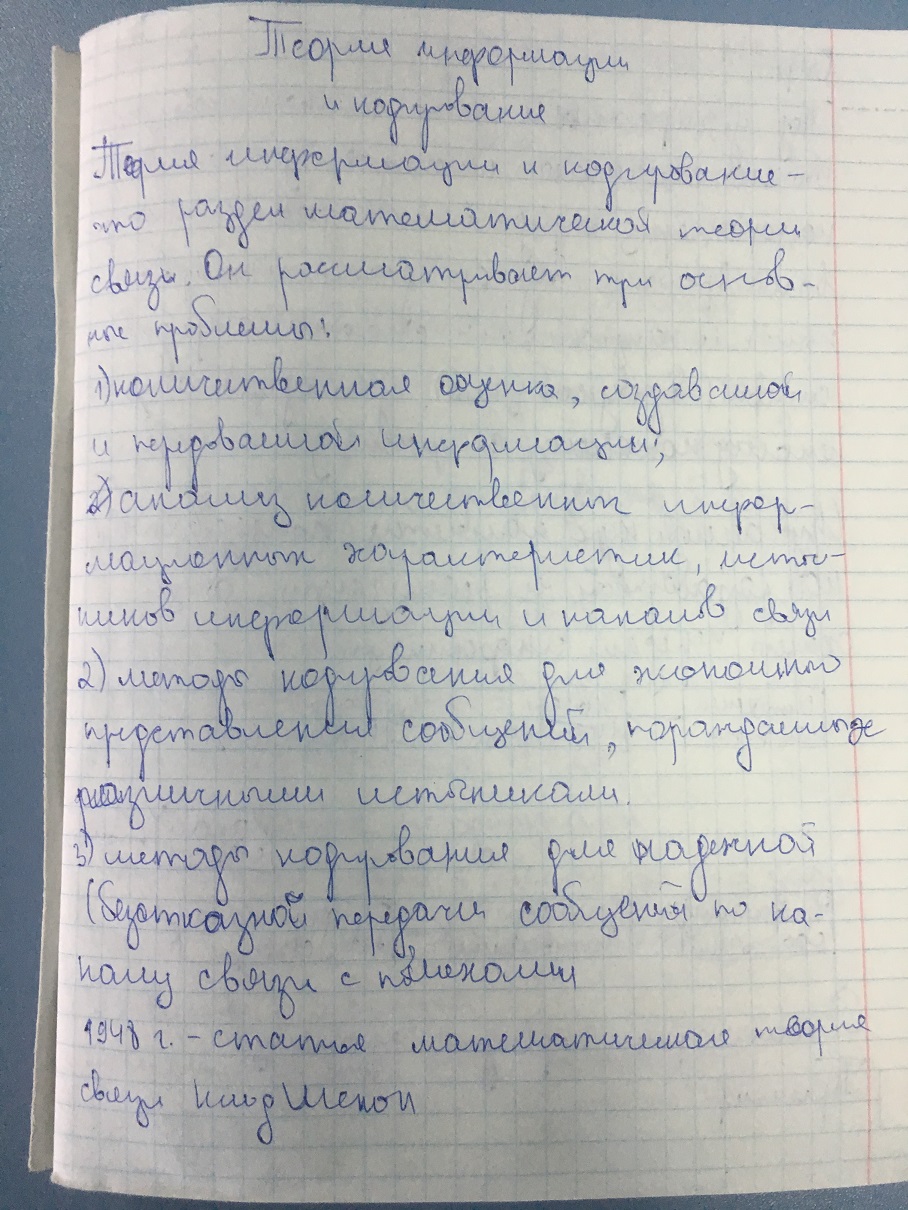 Теория информации
и кодирование
Теория информации и кодирование –
это раздел математической теории
связи. Он рассматривает три основ-
ные проблемы:
1) количественная оценка, создаваемой
и передоваемой информации;
2) анализ количественных инфор-
мационных характеристик, источ-
ников информации и каналов связи
2) методы кодирования для экономного
представления сообщений, пораждаемые
различными источниками.
3) методы кодирования для надежной
(безотказной передачи сообщений по ка-
налу связи с помехами
1948 г. – статья математическая теория
связи Клод Шенон